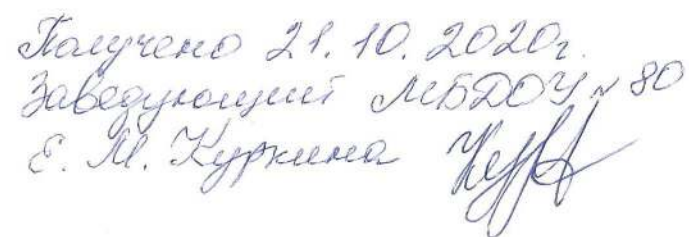 Получено 21.10.2020г.
Заведующий МБДОУ № 80
Е. М. Куркина